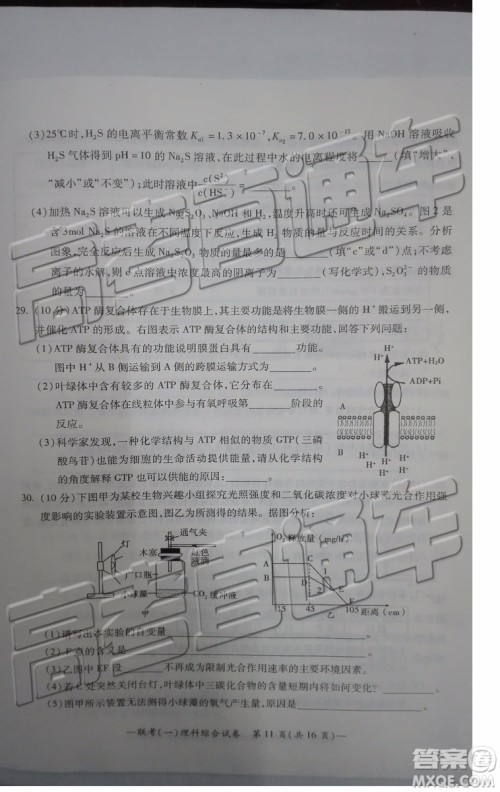 (3)25℃时,H₂S的电离平衡常数Kₐ₁=1.3×10⁻⁷,Kₐ₂=7.0×10⁻¹⁵。用NaOH溶液吸收
H₂S气体得到pH=10的Na₂S溶液,在此过程中水的电离程度将____(填“增大”、
“减小”或“不变”);此时溶液中c(S²⁻)/c(HS⁻)=____
(4)加热Na₂S溶液可以生成Na₂S₂O₃、NaOH和H₂,温度升高时还可生成Na₂SO₄。图2是
含3mol Na₂S的溶液在不同温度下反应,生成H₂物质的量与反应时间的关系。分析
图象,完全反应后生成Na₂S₂O₃物质的量最多的是____(填“c”或“d”)点;不考虑
离子的水解,则c点溶液中浓度最高的阴离子为____(写化学式),S₂O₃²⁻的物质
的量为____
29.(10分)ATP酶复合体存在于生物膜上,其主要功能是将生物膜一侧的H⁺搬运到另一侧,
并催化ATP的形成。右图表示ATP酶复合体的结构和主要功能,回答下列问题:
(1)ATP酶复合体具有的功能说明膜蛋白具有____功能。
图中H⁺从B侧运输到A侧的跨膜运输方式为____。
(2)叶绿体中含有较多的ATP酶复合体,它分布在____。
ATP酶复合体在线粒体中参与有氧呼吸第____阶段的
反应。
(3)科学家发现,一种化学结构与ATP相似的物质GTP(三磷
酸鸟苷)也能为细胞的生命活动提供能量,请从化学结构
的角度解释GTP也可以供能的原因:____
H⁺
H⁺
H⁺
ATP+H₂O
ADP+Pi
A
B
H⁺
30.(10分)下图甲为某校生物兴趣小组探究光照强度和二氧化碳浓度对小球藻光合作用强
度影响的实验装置示意图,图乙为所测得的结果。据图分析:
灯
通气夹
木塞
红色
液滴
广口瓶
小球藻
CO₂缓冲液
甲
O₂释放量(mg/h)
A
B
C
D
E
F
2
1
15
45
105
距离(cm)
乙
(1)请写出本实验的自变量____
(2)F点的含义____
(3)乙图中EF段____不再成为限制光合作用速率的主要环境因素。
(4)若C处突然关闭台灯,叶绿体中三碳化合物的含量短时间内将如何变化?____
(5)图甲所示装置无法直接测得小球藻的氧气产生量,原因是____
—联考(一)理科综合试卷 第11页(共16页)—
高考直通车
高考直通车
高考直通车
答案圈
MXQE.COM